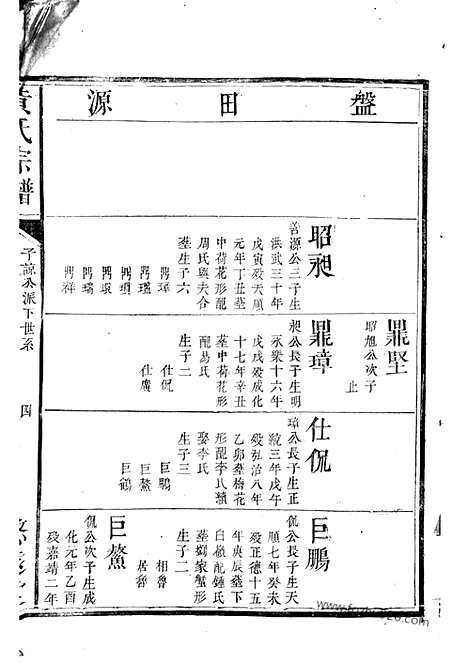 盤田源
昭昶
善源公三子生
洪武三十年
戊寅殁天順
元年丁丑墓
中荷花形配
周氏與夫合
墓生子六
鼎璋
鼎瑞
鼎祥
鼎堅
昭旭公次子
止
鼎璋
昶公長子生明
永樂十六年
戊戌殁成化
十七年辛丑
墓中荷花形
配易氏
生子二
仕侃
仕廣
仕侃
璋公長子生正
統三年戊午
殁弘治八年
乙卯墓梅花
形配李氏續
娶李氏
生子三
巨鵬
巨鰲
巨鶴
巨鵬
侃公長子生天
順七年癸未
殁正德十五
年庚辰墓下
白嶺配鍾氏
墓鄧家蟹形
生子二
相魯
居魯
巨鰲
侃公次子生成
化元年乙酉
殁嘉靖二年
黃氏宗譜
子諒公派下世系
四